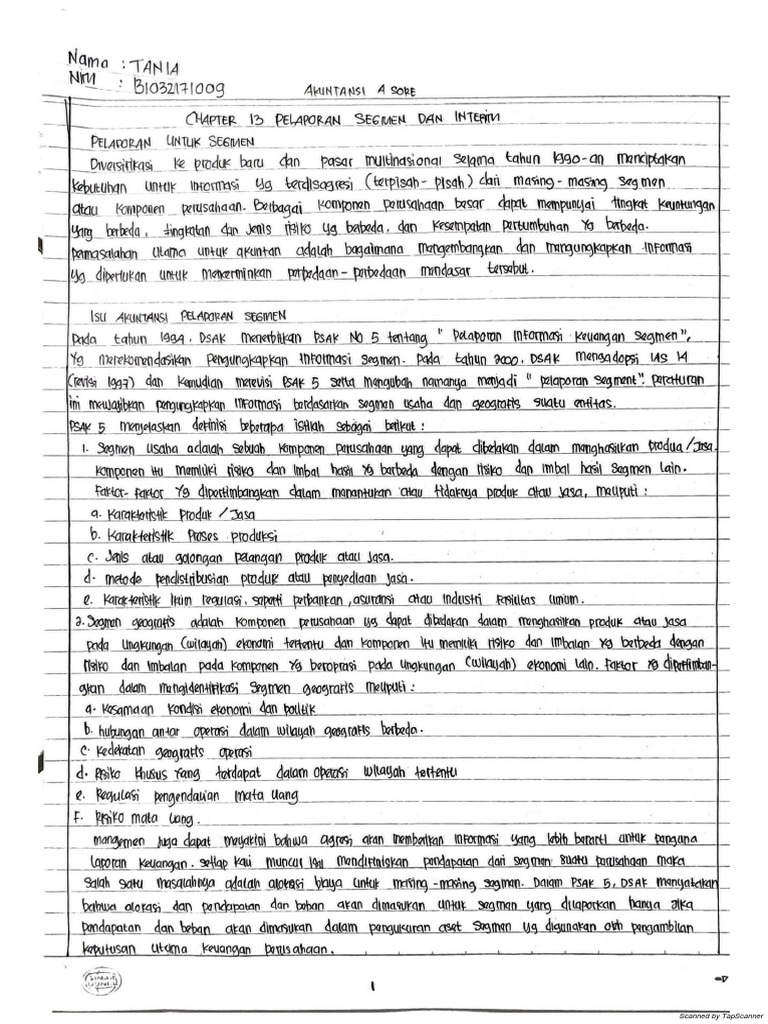 Nama : TANIA
NIM : B1032171009
AKUNTANSI A SORE
CHAPTER 13 PELAPORAN SEGMEN DAN INTERIM
PELAPORAN UNTUK SEGMEN
Diversifikasi ke produk baru dan pasar multinasional selama tahun 1990-an menciptakan
kebutuhan untuk informasi yg terdisagresi (terpisah-pisah) dari masing-masing segmen
atau komponen perusahaan. Berbagai komponen perusahaan besar dapat mempunyai tingkat keuntungan
yang berbeda, tingkatan dan jenis risiko yg berbeda, dan kesempatan pertumbuhan yg berbeda.
permasalahan utama untuk akuntan adalah bagaimana mengembangkan dan mengungkapkan informasi
yg diperlukan untuk mencerminkan perbedaan-perbedaan mendasar tersebut.
ISU AKUNTANSI PELAPORAN SEGMEN
Pada tahun 1994, DSAK menerbitkan PSAK NO 5 tentang " Pelaporan Informasi Keuangan Segmen",
Yg merekomendasikan Pengungkapkan informasi segmen. Pada tahun 2000, DSAK mengadopsi IAS 14
(revisi 1997) dan kemudian merevisi PSAK 5 serta mengubah namanya menjadi " pelaporan segment". peraturan
ini mewajibkan pengungkapkan informasi berdasarkan segmen usaha dan geografis suatu entitas.
PSAK 5 menjelaskan definisi beberapa istilah sebagai berikut :
1. Segmen usaha adalah sebuah komponen perusahaan yang dapat dibedakan dalam menghasilkan produa/Jasa.
komponen itu memiliki risiko dan imbal hasil yg berbeda dengan risiko dan imbal hasil segmen lain.
Faktor-faktor Yg dipertimbangkan dalam menentukan atau tidaknya produk atau jasa, meliputi :
a. Karakteristik Produk /Jasa
b. Karakteristik Proses produksi
c. Jenis atau golongan pelangan produk atau Jasa.
d. metode pendistribusian produk atau penyediaan jasa.
e. Karakteristik Iklim regulasi, seperti perbankan, asuransi atau industri fasilitas umum.
2. Segmen geografis adalah komponen perusahaan yg dapat dibedakan dalam menghasilkan produk atau jasa
pada lingkungan (wilayah) ekonomi tertentu dan komponen itu memiliki risiko dan imbalan Yg berbeda dengan
risiko dan imbalan pada komponen yg beroprasi pada lingkungan (wilayah) ekonomi lain. Faktor yg dipertimban-
gkan dalam mengidentifikasi segmen geografis meliputi :
a. Kesamaan kondisi ekonomi dan politik
b. hubungan antar operasi dalam wilayah geografis berbeda.
c. Kedekatan geografis operasi
d. Risiko khusus yang terdapat dalam operasi wilayah tertentu
e. Regulasi pengendalian mata uang
F. Risiko mata uang.
mangemen juga dapat meyakini bahwa agresi akan memberikan informasi yang lebih berarti untuk penguna
laporan keuangan. setiap kali muncul isu mendifiniskan pendapatan dari segmen suatu perusahaan maka
salah satu masalahnya adalah alokasi biaya untuk masing-masing segmen. Dalam PSAK 5, DSAK menyatakan
bahwa alokasi dan pendapatan dan beban akan dimasukan untuk segmen yang dilaporkan hanya jika
pendapatan dan beban akan dimasukan dalam pengukuran aset segmen yg digunakan oleh pengambilan
keputusan utama keuangan perusahaan.
1
Scanned by TapScanner